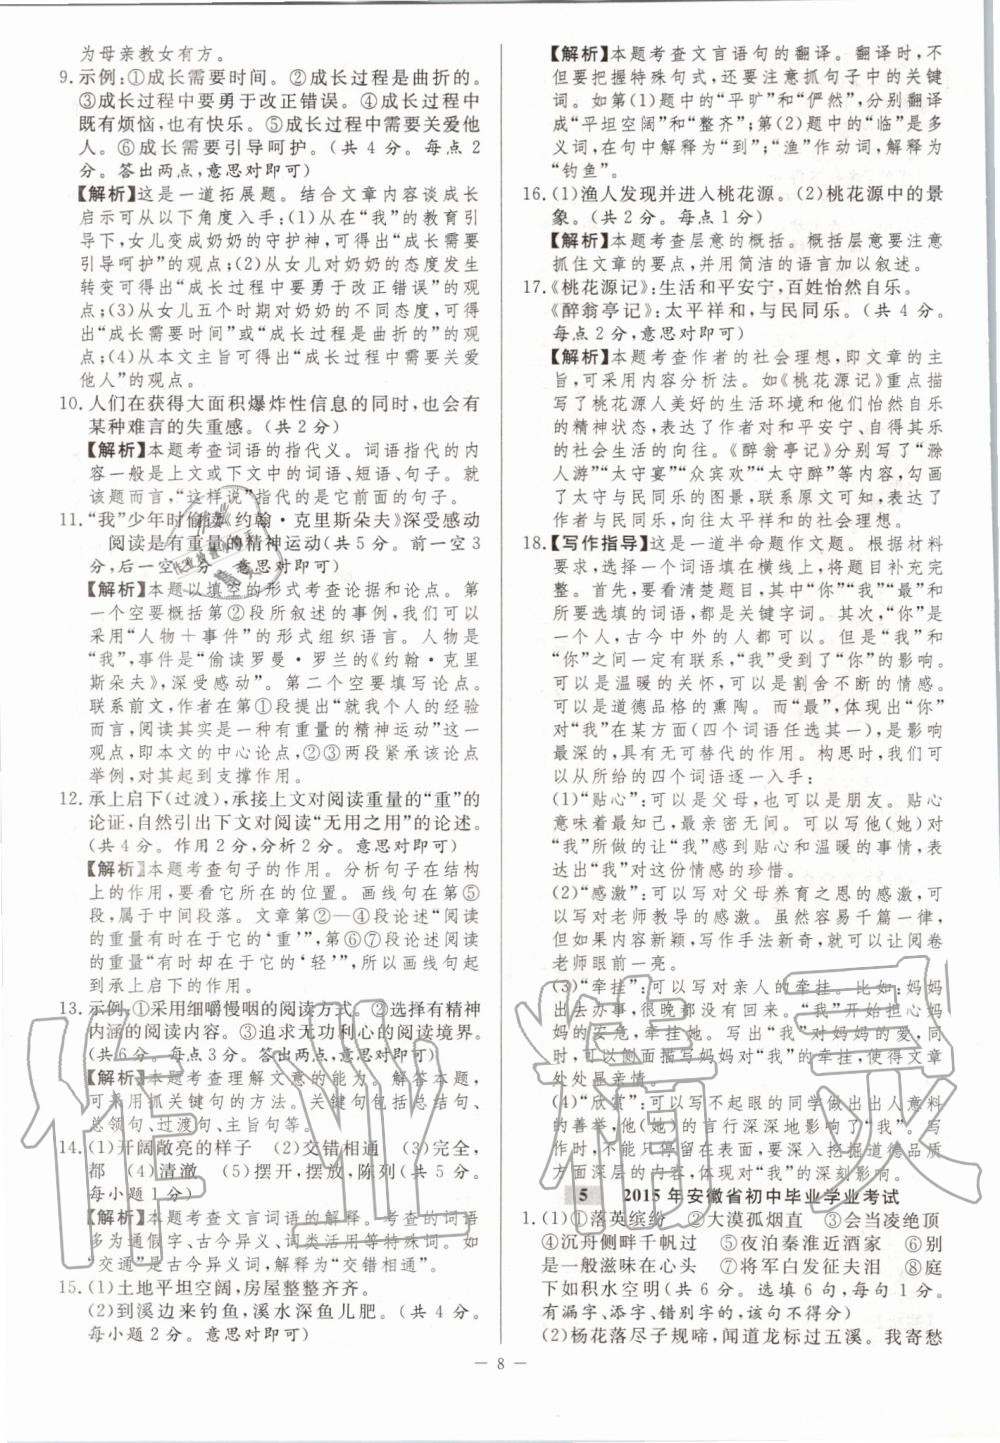 为母亲教女有方。
9. 示例:①成长需要时间。②成长过程是曲折的。
③成长过程中要勇于改正错误。④成长过程中
既有烦恼,也有快乐。⑤成长过程中需要关爱他
人。⑥成长需要引导呵护。(共4分。每点2
分。答出两点,意思对即可)
【解析】这是一道拓展题。结合文章内容谈成长
启示可从以下角度入手:(1)从在“我”的教育引
导下,女儿变成奶奶的守护神,可得出“成长需要
引导呵护”的观点;(2)从女儿对奶奶的态度发生
转变可得出“成长过程中要勇于改正错误”的观
点;(3)从女儿五个时期对奶奶的不同态度,可得
出“成长需要时间”或“成长过程是曲折的”的观
点;(4)从本文主旨可得出“成长过程中需要关爱
他人”的观点。
10. 人们在获得大面积爆炸性信息的同时,也会有
某种难言的失重感。(共2分)
【解析】本题考查词语的指代义。词语指代的内
容一般是上文或下文中的词语、短语、句子。就
该题而言,“这样说”指代的是它前面的句子。
11. “我”少年时偷读《约翰·克里斯朵夫》深受感动
阅读是有重量的精神运动(共5分。前一空3
分,后一空2分。意思对即可)
【解析】本题以填空的形式考查论据和论点。第
一个空要概括第②段所叙述的事例,我们可以
采用“人物+事件”的形式组织语言。人物是
“我”,事件是“偷读罗曼·罗兰的《约翰·克里
斯朵夫》,深受感动”。第二个空要填写论点。
联系前文,作者在第①段提出“就我个人的经验
而言,阅读其实是一种有重量的精神运动”这一
观点,即本文的中心论点,②③两段紧承该论点
举例,对其起到支撑作用。
12. 承上启下(过渡),承接上文对阅读重量的“重”的
论证,自然引出下文对阅读“无用之用”的论述。
(共4分。作用2分,分析2分。意思对即可)
【解析】本题考查句子的作用。分析句子在结构
上的作用,要看它所在的位置。画线句在第⑤
段,属于中间段落。文章第②—④段论述“阅读
的重量有时在于它的‘重’”,第⑥⑦段论述阅读
的重量“有时却在于它的‘轻’”,所以画线句起
到承上启下的作用。
13. 示例:①采用细嚼慢咽的阅读方式。②选择有精神
内涵的阅读内容。③追求无功利心的阅读境界。
(共6分。每点3分。答出两点,意思对即可)
【解析】本题考查理解文意的能力。解答本题,
可采用抓关键句的方法。关键句包括总结句、
总领句、过渡句、主旨句等。
14. (1)开阔敞亮的样子 (2)交错相通 (3)完全,
都 (4)清澈 (5)摆开,摆放,陈列(共5分。
每小题1分)
【解析】本题考查文言词语的解释。考查的词语
多为通假字、古今异义、词类活用等特殊词语。
如“交通”是古今异义词,解释为“交错相通”。
15. (1)土地平坦空阔,房屋整整齐齐。
(2)到溪边来钓鱼,溪水深鱼儿肥。(共4分。
每小题2分。意思对即可)
【解析】本题考查文言语句的翻译。翻译时,不
但要把握特殊句式,还要注意抓句子中的关键
词。如第(1)题中的“平旷”和“俨然”,分别翻译
成“平坦空阔”和“整齐”;第(2)题中的“临”是多
义词,在句中解释为“到”;“渔”作动词,解释为
“钓鱼”。
16. (1)渔人发现并进入桃花源。(2)桃花源中的景
象。(共2分。每点1分)
【解析】本题考查层意的概括。概括层意要注意
抓住文章的要点,并用简洁的语言加以叙述。
17. 《桃花源记》:生活和平安宁,百姓怡然自乐。
《醉翁亭记》:太平祥和,与民同乐。(共4分。
每点2分,意思对即可)
【解析】本题考查作者的社会理想,即文章的主
旨,可采用内容分析法。如《桃花源记》重点描
写了桃花源人美好的生活环境和他们怡然自乐
的精神状态,表现了作者对和平安宁、自得其乐
的社会生活的向往。《醉翁亭记》分别写了“滁
人游”“太守宴”“众宾欢”“太守醉”等内容,勾画
了太守与民同乐的图景,联系原文可知,文章寄
托了作者与民同乐,向往太平祥和的社会理想。
18. 【写作指导】这是一道半命题作文题。根据材料
要求,选择一个词语填在横线上,将题目补充完
整。首先,要看清楚题目,其中“你”“我”“最”和
所要选填的词语,都是关键字词。其次,“你”是
一个人,古今中外的人都可以。但是“我”和
“你”之间一定要有联系,“我”受到了“你”的影响。
可以是温暖的关怀,可以是割舍不断的情感,
可以是道德品格的熏陶。而“最”,体现出“你”
对“我”在某方面(四个词语任选其一),是影响
最深的,具有无可替代的作用。构思时,我们可
以从所给的四个词语逐一入手:
(1)“贴心”:可以是父母,也可以是朋友。贴心
意味着最知己、最亲密无间。可以写对他(她)对
“我”所做的让“我”感到贴心和温暖的事情,表
达“我”对这份情感的珍惜。
(2)“感激”:可以写对父母养育之恩的感激,可
以写对老师教导的感激。虽然容易千篇一律,
但如果内容新颖,写作手法新奇,就可以让阅卷
老师眼前一亮。
(3)“牵挂”:可以写对亲人的牵挂。比如:妈妈
出去办事,很晚都没有回来,“我”开始担心妈
妈的安危,牵挂她。写出“我”对妈妈的爱,同
时,可以侧面描写妈妈对“我”的牵挂,使得文章
处处显亲情。
(4)“欣赏”:可以写不起眼的同学做出出人意料
的善举,他(她)的行为深深地影响了“我”。写
作时,不能只停留在表面,要深入挖掘道德品质
方面深层的内容,体现出对“我”的深刻影响。
5 2015年安徽省初中毕业学业考试
1. (1)①落英缤纷 ②大漠孤烟直 ③会当凌绝顶
④沉舟侧畔千帆过 ⑤夜泊秦淮近酒家 ⑥别
是一般滋味在心头 ⑦将军白发征夫泪 ⑧庭
下如积水空明(共6分。选填6句,每句1分。
有漏字、添字、错别字的,该句不得分)
(2)杨花落尽子规啼,闻道龙标过五溪。我寄愁
— 8 —
作业精灵